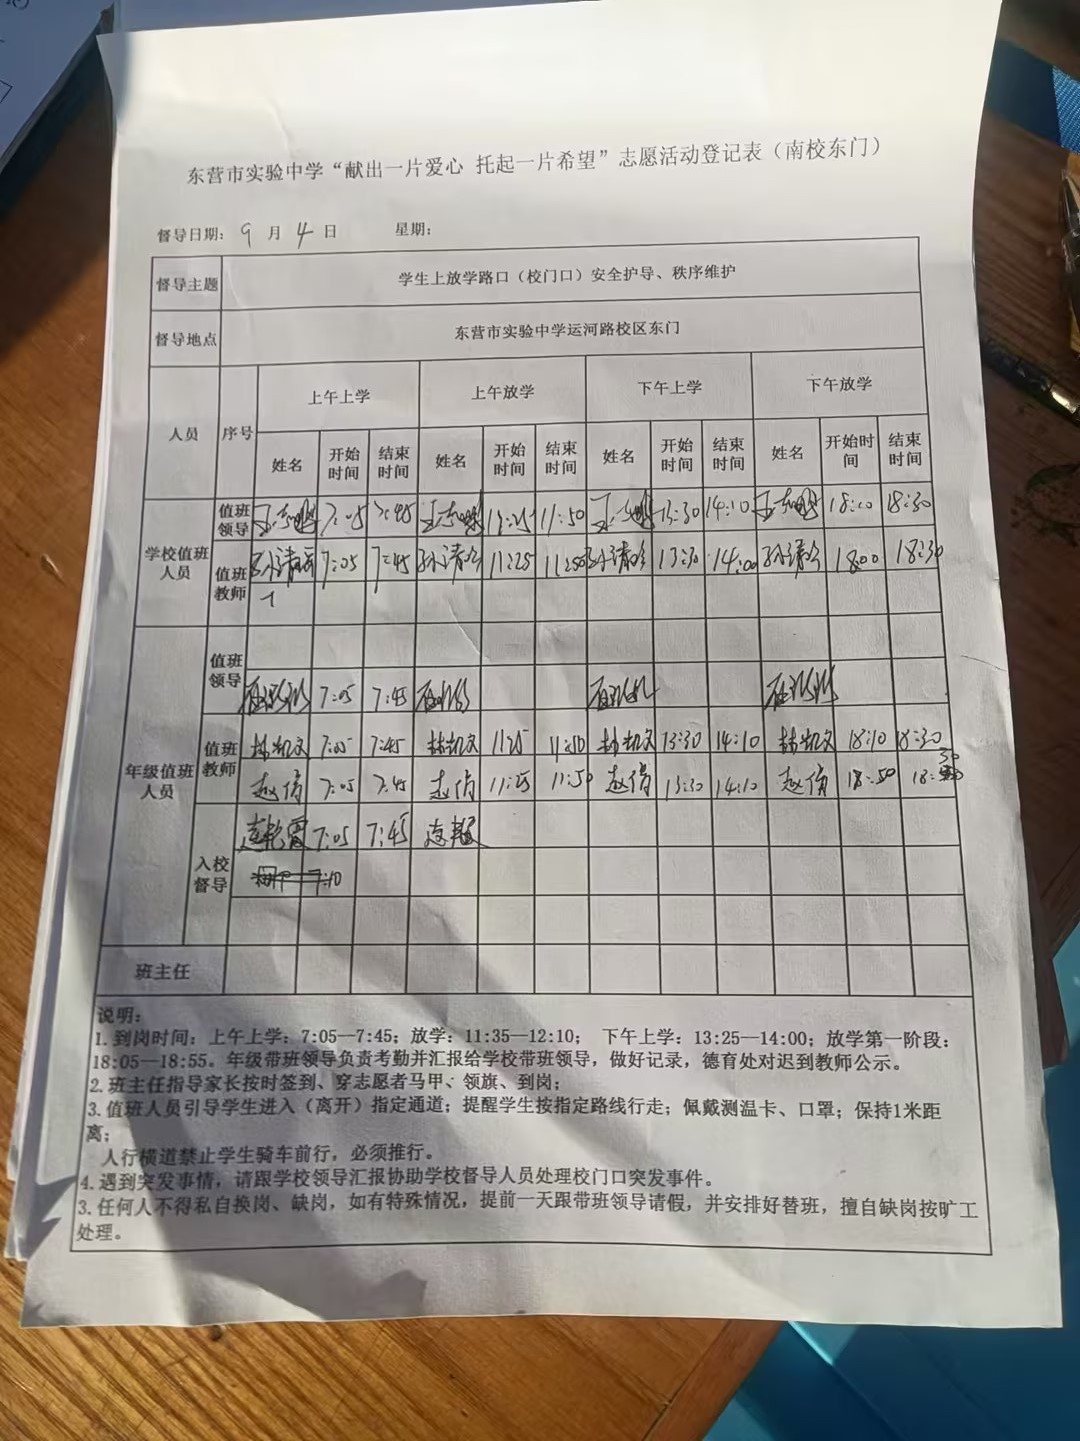 东营市实验中学“献出一片爱心 托起一片希望”志愿活动登记表（南校东门）
督导日期: 9 月 4 日 星期:
督导主题 学生上放学路口（校门口）安全护导、秩序维护
督导地点 东营市实验中学运河路校区东门
人员 序号 上午上学 上午放学 下午上学 下午放学
姓名 开始时间 结束时间 姓名 开始时间 结束时间 姓名 开始时间 结束时间 姓名 开始时间 结束时间
学校值班人员 值班领导 7:05 7:45 11:25 11:50 13:30 14:10 18:10 18:30
值班教师 7:05 7:45 11:25 11:50 13:30 14:00 18:00 18:30
年级值班人员 值班领导
7:05 7:45
值班教师 林凯文 7:05 7:45 林凯文 11:25 11:50 林凯文 13:30 14:10 林凯文 18:10 18:30
赵倩 7:05 7:45 赵倩 11:25 11:50 赵倩 13:30 14:10 赵倩 18:50 18:30
入校督导 7:05 7:45
7:10
班主任
说明:
1. 到岗时间: 上午上学: 7:05—7:45; 放学: 11:35—12:10; 下午上学: 13:25—14:00; 放学第一阶段:
18:05—18:55。年级带班领导负责考勤并汇报给学校带班领导，做好记录，德育处对迟到教师公示。
2. 班主任指导家长按时签到、穿志愿者马甲、领旗、到岗;
3. 值班人员引导学生进入（离开）指定通道; 提醒学生按指定路线行走; 佩戴测温卡、口罩; 保持1米距
离;
人行横道禁止学生骑车前行，必须推行。
4. 遇到突发事情，请跟学校领导汇报协助学校督导人员处理校门口突发事件。
3. 任何人不得私自换岗、缺岗，如有特殊情况，提前一天跟带班领导请假，并安排好替班，擅自缺岗按旷工
处理。